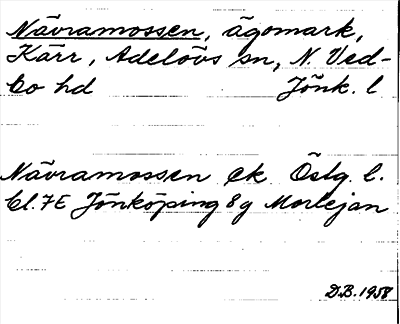 Nävramossen, ägomark,
Kärr, Adelövs sn, N. Ved-
bo hd Jönk. l
Nävramossen ek Östg. l.
bl. 7E Jönköping 8g Morlejan
D.B. 1958